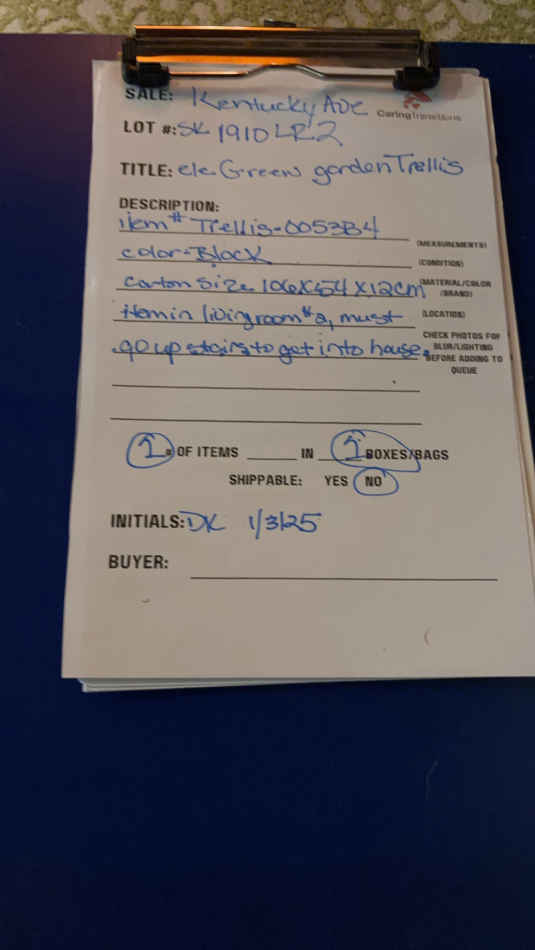 SALE: Kentucky Ave
CaringTransitions
LOT #: SK 1910 LR2
TITLE: ele. Green garden Trellis
DESCRIPTION:
item # Trellis-0053B4
(MEASUREMENTS)
color-Black
(CONDITION)
carton size 106x54x12cm
(MATERIAL/COLOR
/BRAND)
item in livingroom #2, must
(LOCATION)
go up stairs to get into house.
CHECK PHOTOS FOR
BLUR/LIGHTING
BEFORE ADDING TO
QUEUE
1 # OF ITEMS IN 1 BOXES/BAGS
SHIPPABLE: YES NO
INITIALS: DK 1/3/25
BUYER: